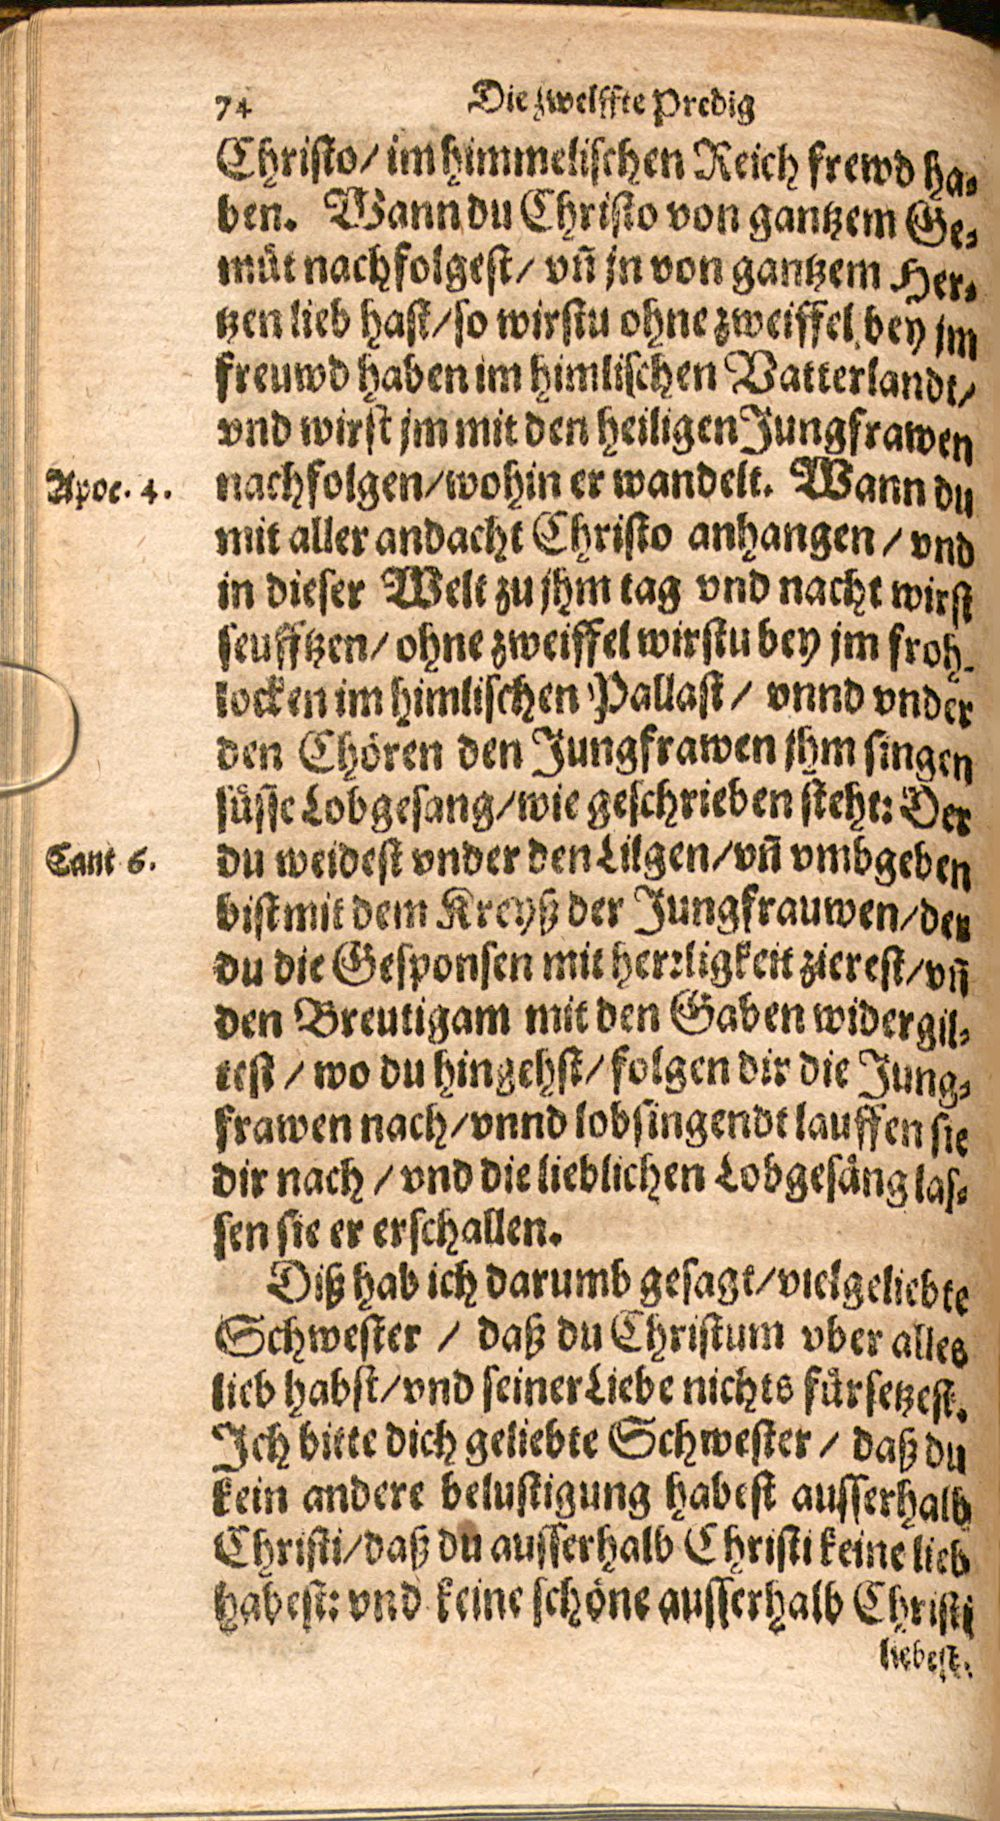 74 Die zwelffte Predig
Christo/ im himmelischen Reich frewd ha-
ben. Wann du Christo von gantzem Ge-
müt nachfolgest/ vñ jn von gantzem Her-
tzen lieb hast/ so wirstu ohne zweiffel bey jm
freuwd haben im himlischen Vatterlandt/
vnd wirst jm mit den heiligen Jungfrawen
Apoc. 4. nachfolgen/ wohin er wandelt. Wann du
mit aller andacht Christo anhangen / vnd
in dieser Welt zu jhm tag vnd nacht wirst
seufftzen/ ohne zweiffel wirstu bey jm froh-
locken im himlischen Pallast/ vnnd vnder
den Chören den Jungfrawen jhm singen
süsse Lobgesang/ wie geschrieben steht: Der
Cant 6. du weidest vnder den Lilgen/ vñ vmbgeben
bist mit dem Kreyß der Jungfrauwen/ der
du die Gesponsen mit herrligkeit zierest/ vñ
den Breutigam mit den Gaben widergil-
test / wo du hingehst/ folgen dir die Jung-
frawen nach/ vnnd lobsingendt lauffen sie
dir nach / vnd die lieblichen Lobgesäng las-
sen sie er erschallen.
Diß hab ich darumb gesagt/ vielgeliebte
Schwester / daß du Christum vber alles
lieb habst/ vnd seiner Liebe nichts fürsetzest.
Ich bitte dich geliebte Schwester / daß du
kein andere belustigung habest ausserhalb
Christi/ daß du ausserhalb Christi keine lieb
habest: vnd keine schöne ausserhalb Christi
liebest.